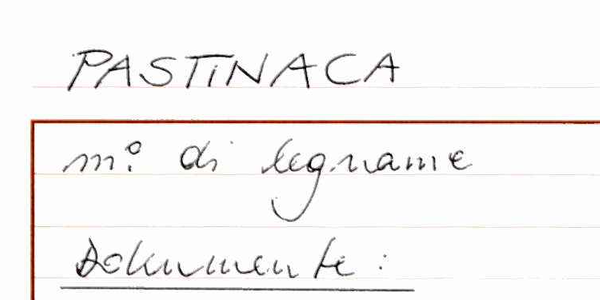 PASTINACA
m.° di legname
Dokumente: